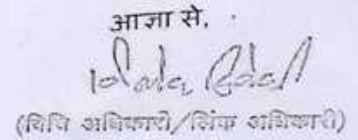 आज्ञा से,
(विधि अधिकारी/लिंक अधिकारी)